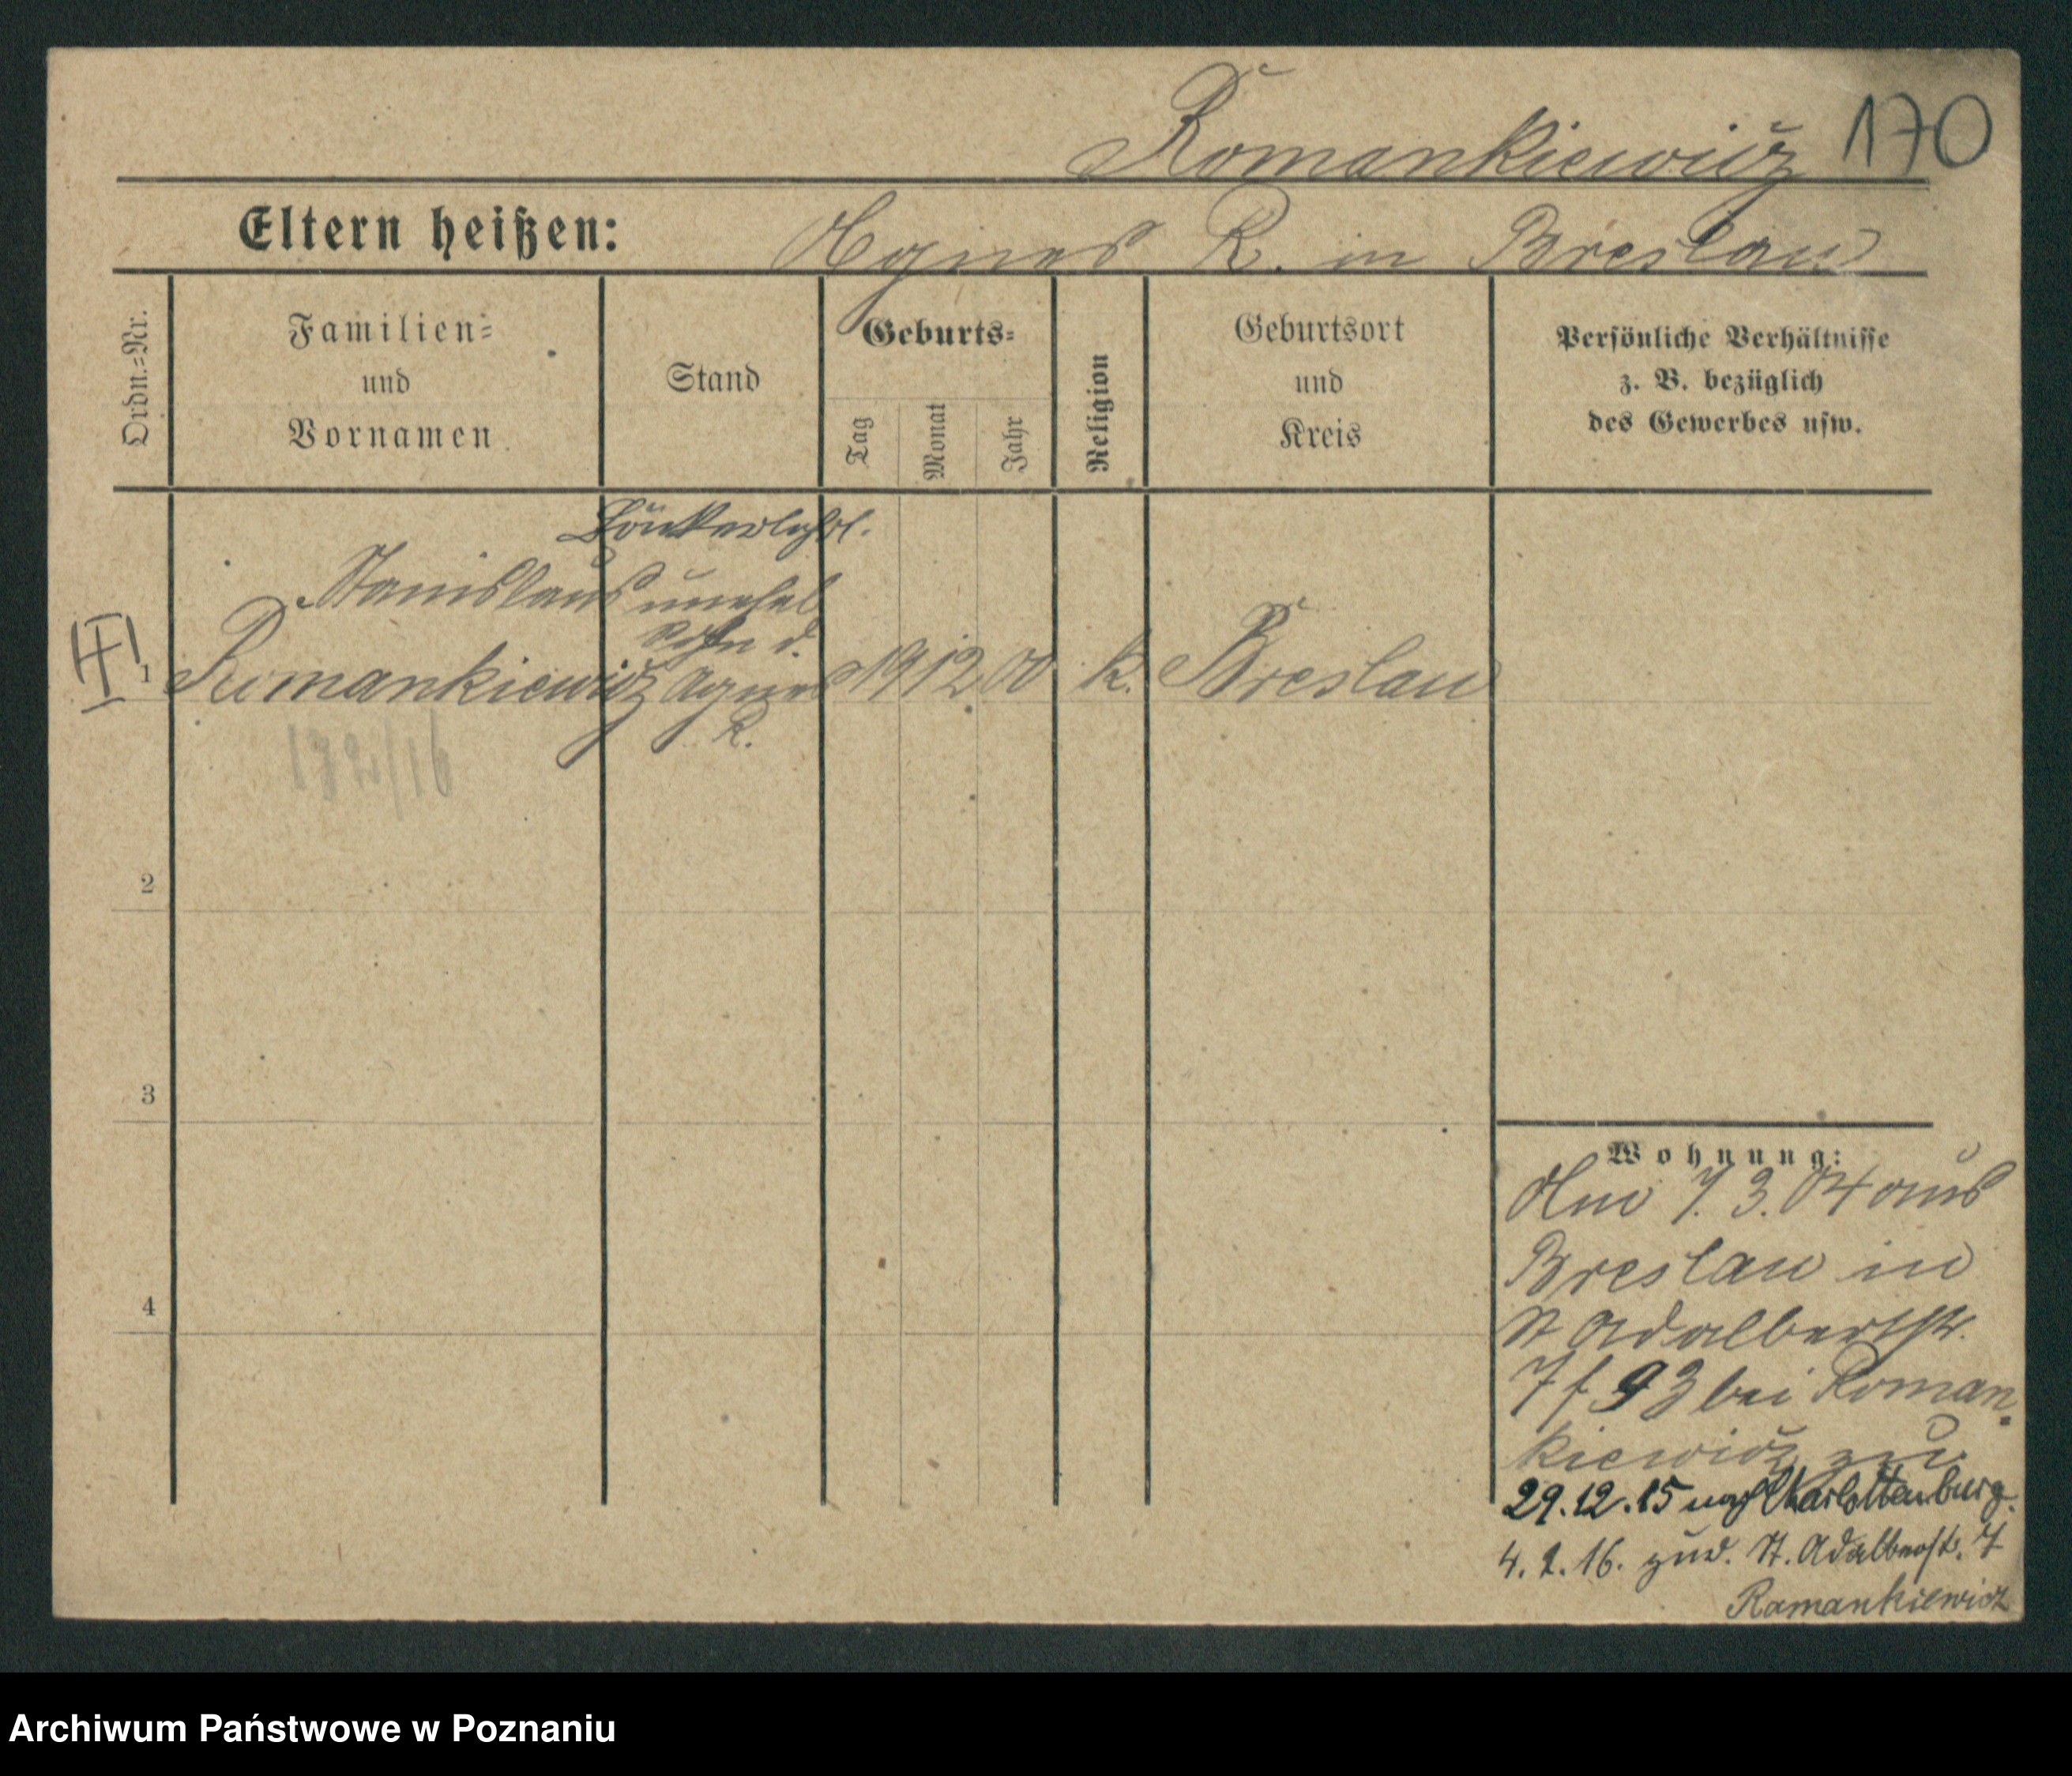 Romankiewicz 170
Eltern heißen: Agnes R. in Breslau
Ordn.=Nr.
Familien=
und
Vornamen
Stand
Geburts=
Tag
Monat
Jahr
Religion
Geburtsort
und
Kreis
Persönliche Verhältnisse
z. B. bezüglich
des Gewerbes usw.
Stanislaus unehel
Sohn d.
1 Romankiewicz Agnes 19 12 00 k. Breslau
R.
2
3
4
Wohnung:
Am 7. 3. 04 aus
Breslau in
St Adalbertstr.
7 f 93 bei Roman=
kiewicz zu.
29.12.15 nach Charlottenburg.
4. 2. 16. zur. St. Adalbertstr. 7
Romankiewicz
Archiwum Państwowe w Poznaniu